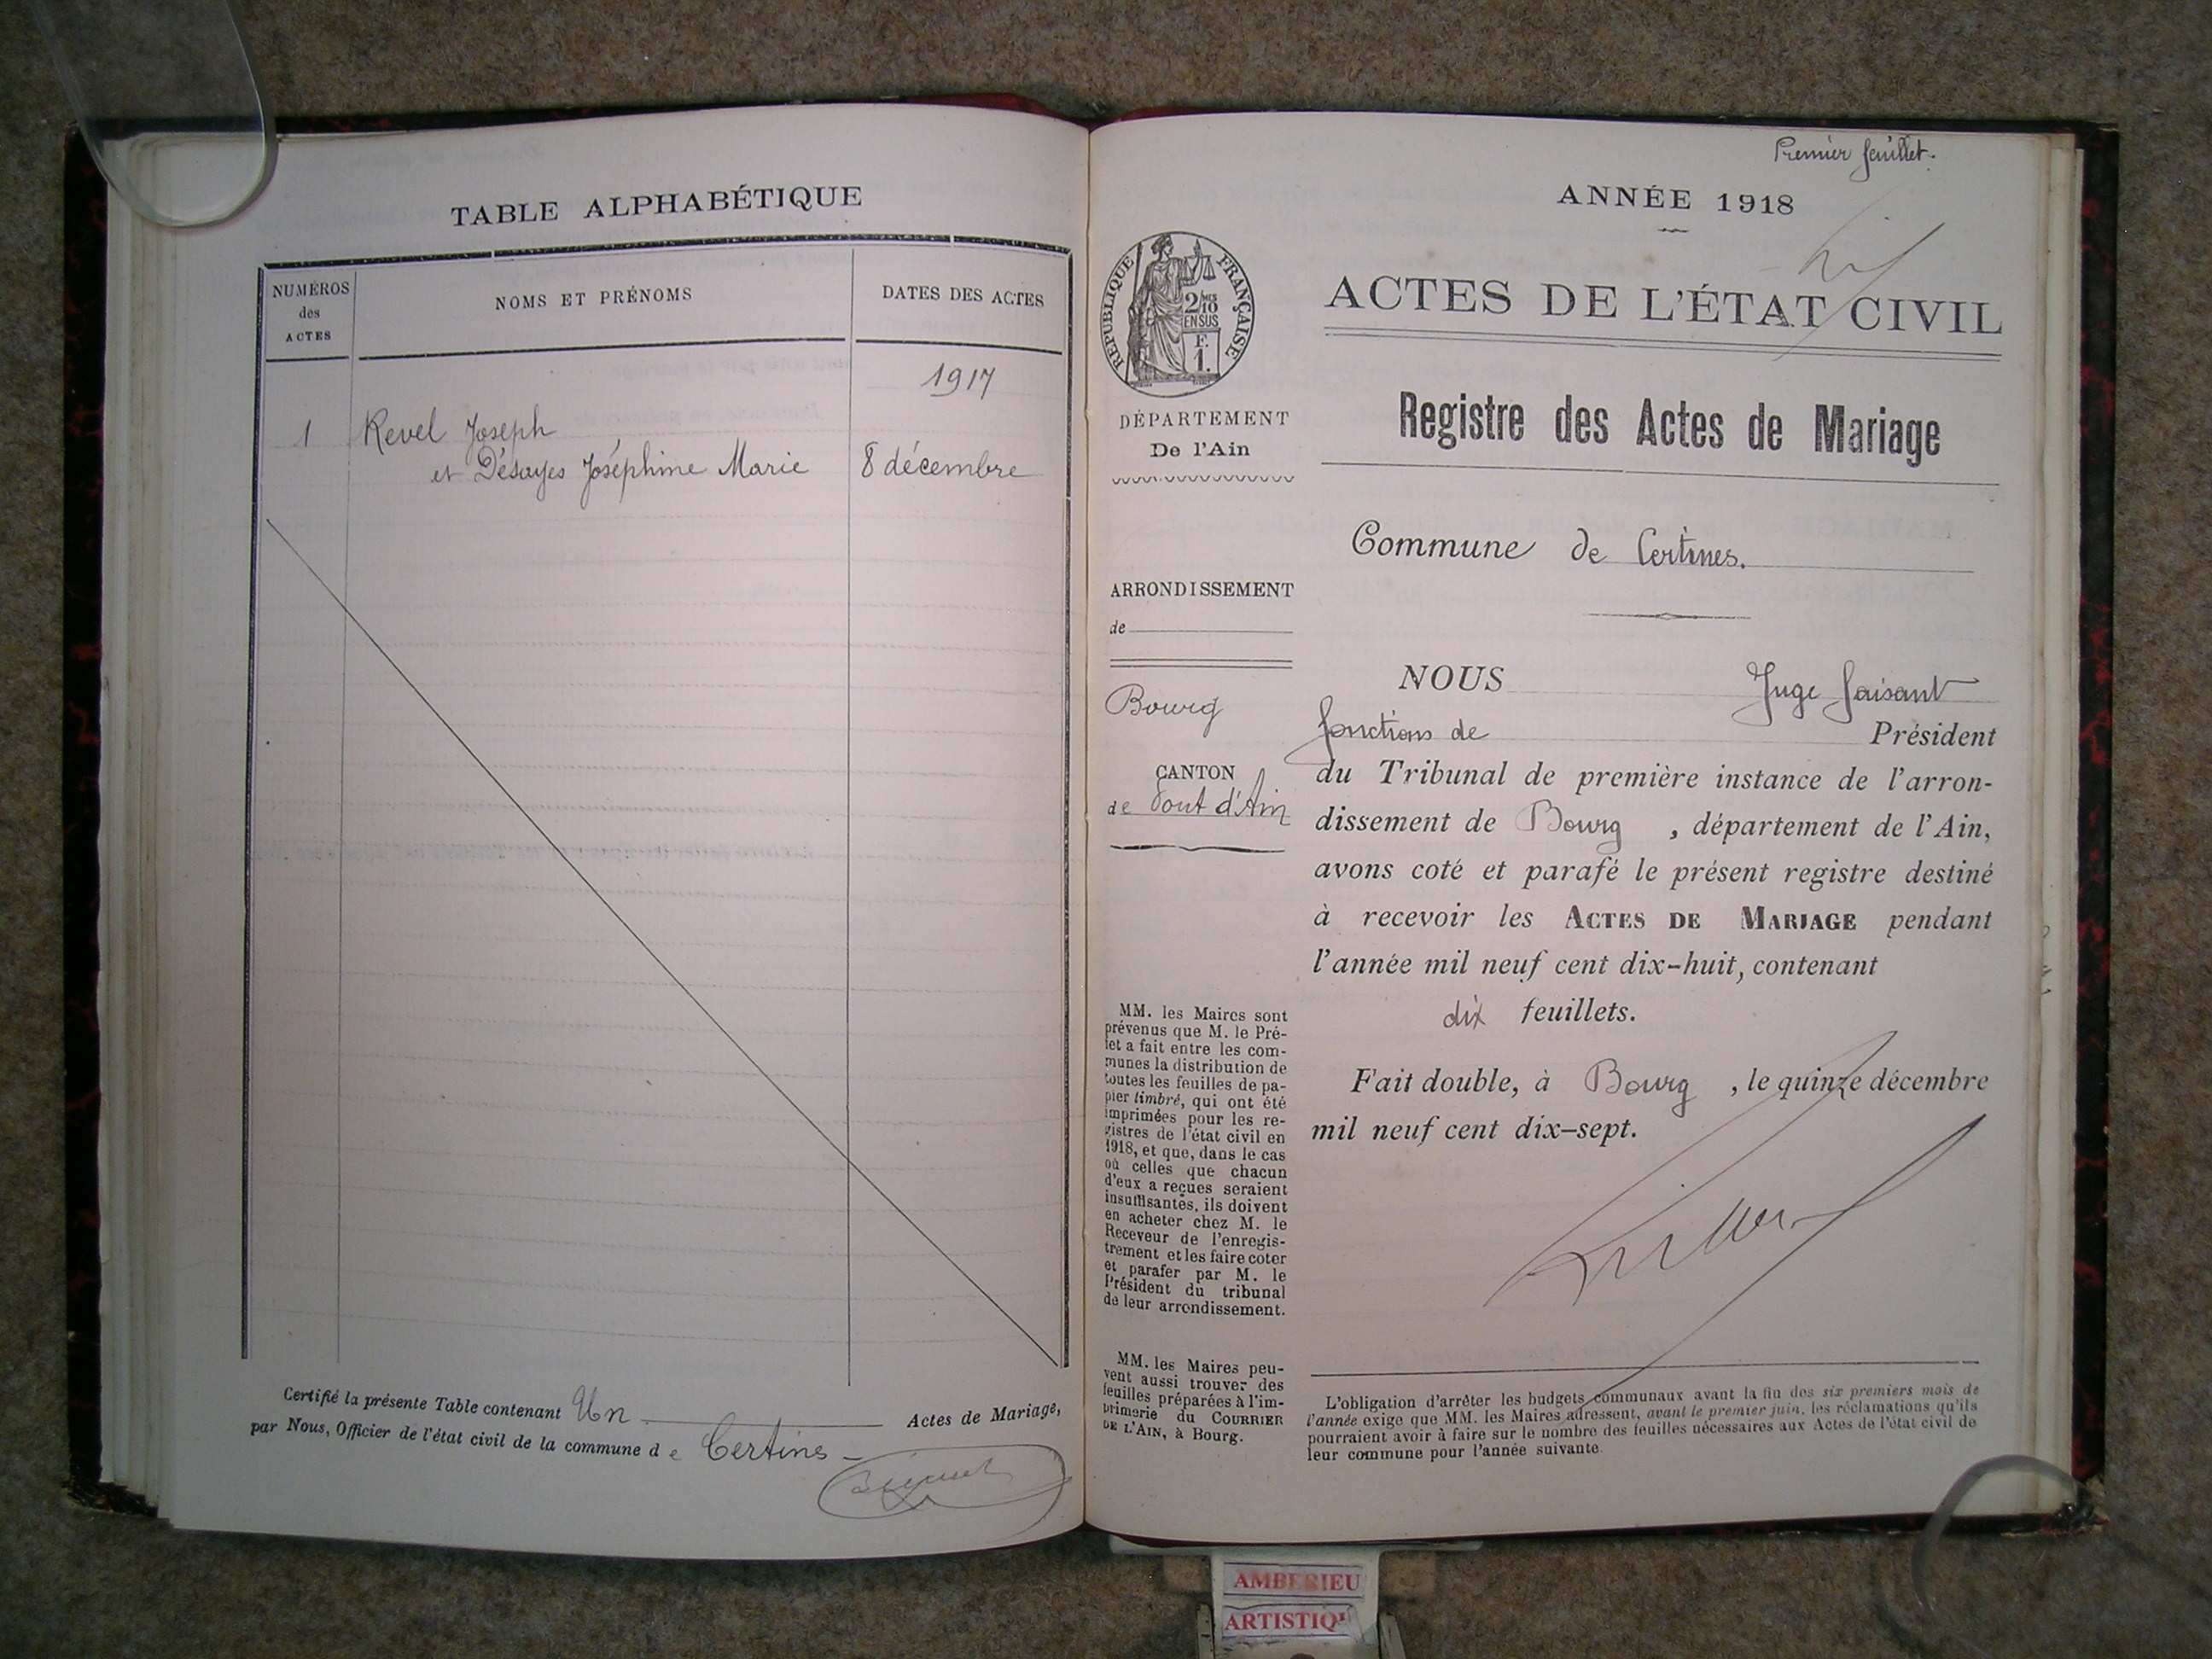 TABLE ALPHABÉTIQUE
NUMÉROS
des
ACTES
NOMS ET PRÉNOMS
DATES DES ACTES
1917
1 Revel Joseph
et Désayes Joséphine Marie 8 décembre
Certifié la présente Table contenant Un Actes de Mariage,
par Nous, Officier de l'état civil de la commune de Certines
Premier feuillet.
ANNÉE 1918
RÉPUBLIQUE FRANÇAISE
2/10
MES
EN SUS
F.
1.
ACTES DE L'ÉTAT CIVIL
DÉPARTEMENT
De l'Ain
Registre des Actes de Mariage
Commune de Certines.
ARRONDISSEMENT
de
Bourg
CANTON
de Pont d'Ain
NOUS Juge faisant
fonctions de Président
du Tribunal de première instance de l'arron-
dissement de Bourg , département de l'Ain,
avons coté et parafé le présent registre destiné
à recevoir les ACTES DE MARIAGE pendant
l'année mil neuf cent dix-huit, contenant
dix feuillets.
Fait double, à Bourg , le quinze décembre
mil neuf cent dix-sept.
MM. les Maires sont
prévenus que M. le Pré-
fet a fait entre les com-
munes la distribution de
toutes les feuilles de pa-
pier timbré, qui ont été
imprimées pour les re-
gistres de l'état civil en
1918, et que, dans le cas
où celles que chacun
d'eux a reçues seraient
insuffisantes, ils doivent
en acheter chez M. le
Receveur de l'enregis-
trement et les faire coter
et parafer par M. le
Président du tribunal
de leur arrondissement.
MM. les Maires peu-
vent aussi trouver des
feuilles préparées à l'im-
primerie du COURRIER
DE L'AIN, à Bourg.
L'obligation d'arrêter les budgets communaux avant la fin des six premiers mois de
l'année exige que MM. les Maires adressent, avant le premier juin, les réclamations qu'ils
pourraient avoir à faire sur le nombre des feuilles nécessaires aux Actes de l'état civil de
leur commune pour l'année suivante.
AMBERIEU
ARTISTIQU